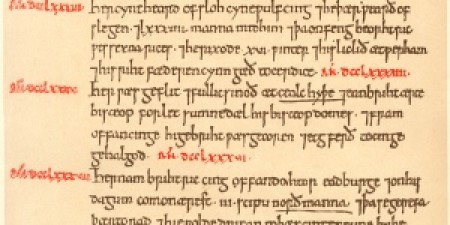 Añ. dcclxxxiii. Her cyneheard ofsloh cyneƿulf cing 7 he þær ƿearð of
slegen. 7 lxxxiiii. manna mid him 7 þa onfeng beorhtric
ƿesseaxna rices. 7 he rixode .xvi. ƿinter 7 his lic lið æt ƿerham
7 his riht fæderencynn gæð to cerdice. Añ. dcclxxxiiii.
Añ. dcclxxxv. Her ƿæs geflitfullic sinoð æt cealchyþe 7 eanbriht arce
bisceop forlet sumne dæl his bisceopdomes. 7 fram
offan cinge higebriht ƿæs gecoren 7 ecgferð to cinge
gehalgod. Añ. dcclxxxvi.
Añ. dcclxxxvii. Her nam brihtric cing offan dohtor eadburge 7 on his
dagum comon ærest .iii. scipu norðmanna 7 þa se gerefa